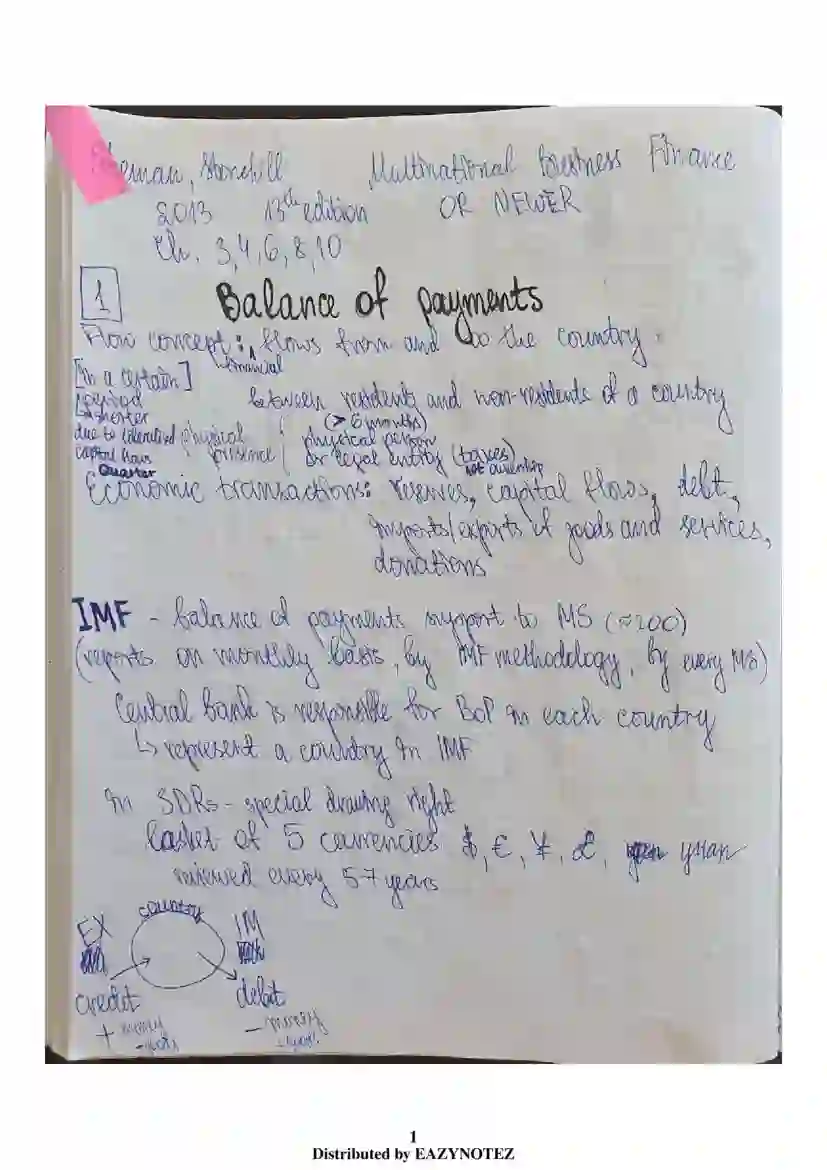 eman, Stonehill Multinational Business Finance
2013 13th edition OR NEWER
Ch. 3,4,6,8,10
1 Balance of payments
Flow concept: flows from and to the country.
financial
[in a certain]
period
between residents and non-residents of a country
shorter
(> 6 months)
due to liberalized physical presence physical person
capital flows or legal entity (taxes)
not ownership
Quarter
Economic transactions: reserves, capital flows, debt,
imports/exports of goods and services,
donations
IMF - balance of payments support to MS (≈200)
(reports on monthly basis, by IMF methodology, by every MS)
Central bank is responsible for BoP in each country
↳ represent a country in IMF
in SDRs - special drawing right
basket of 5 currencies $, €, ¥, £, yuan
reviewed every 5-7 years
country
EX IM
credit debit
+ money - money
- goods
1
Distributed by EAZYNOTEZ